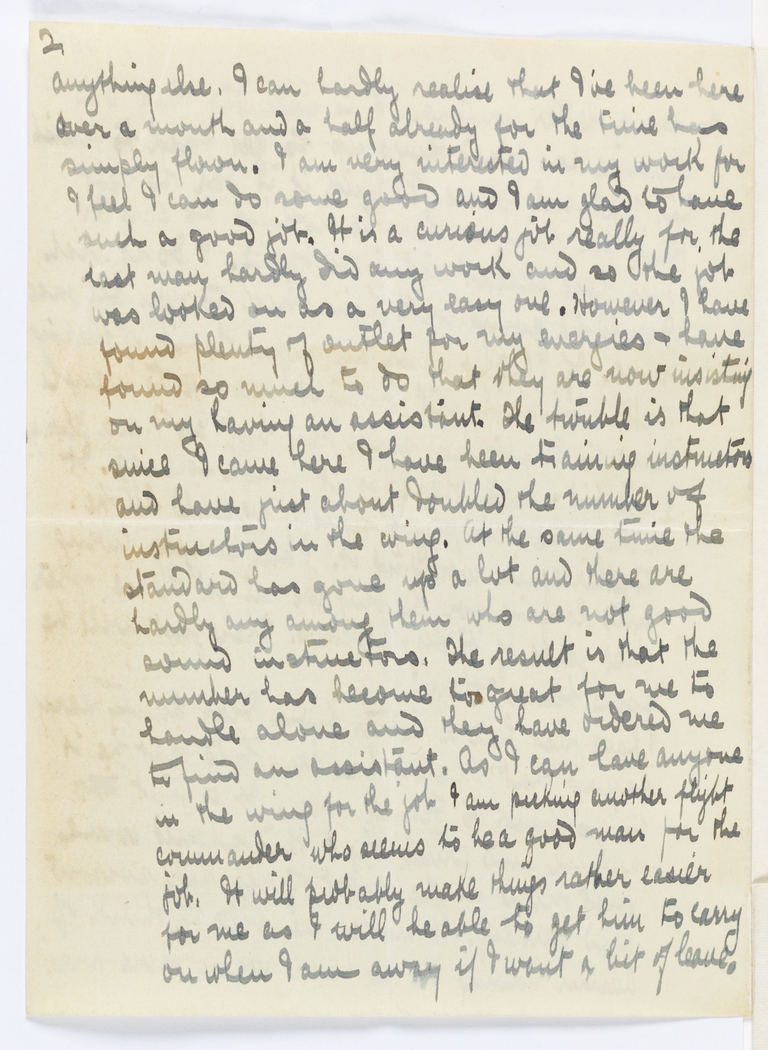 2
anything else. I can hardly realise that I've been here
over a month and a half already for the time has
simply flown. I am very interested in my work for
I feel I can do some good and I am glad to have
such a good job. It is a curious job really for the
last man hardly did any work and so the job
was looked on as a very easy one. However I have
found plenty of outlet for my energies & have
found so much to do that they are now insisting
on my having an assistant. The trouble is that
since I came here I have been training instructors
and have just about doubled the number of
instructors in the wing. At the same time the
standard has gone up a lot and there are
hardly any among them who are not good
sound instructors. The result is that the
number has become too great for me to
handle alone and they have ordered me
to find an assistant. As I can have anyone
in the wing for the job I am picking another flight
commander who seems to be a good man for the
job. It will probably make things rather easier
for me as I will be able to get him to carry
on when I am away if I want a bit of leave.